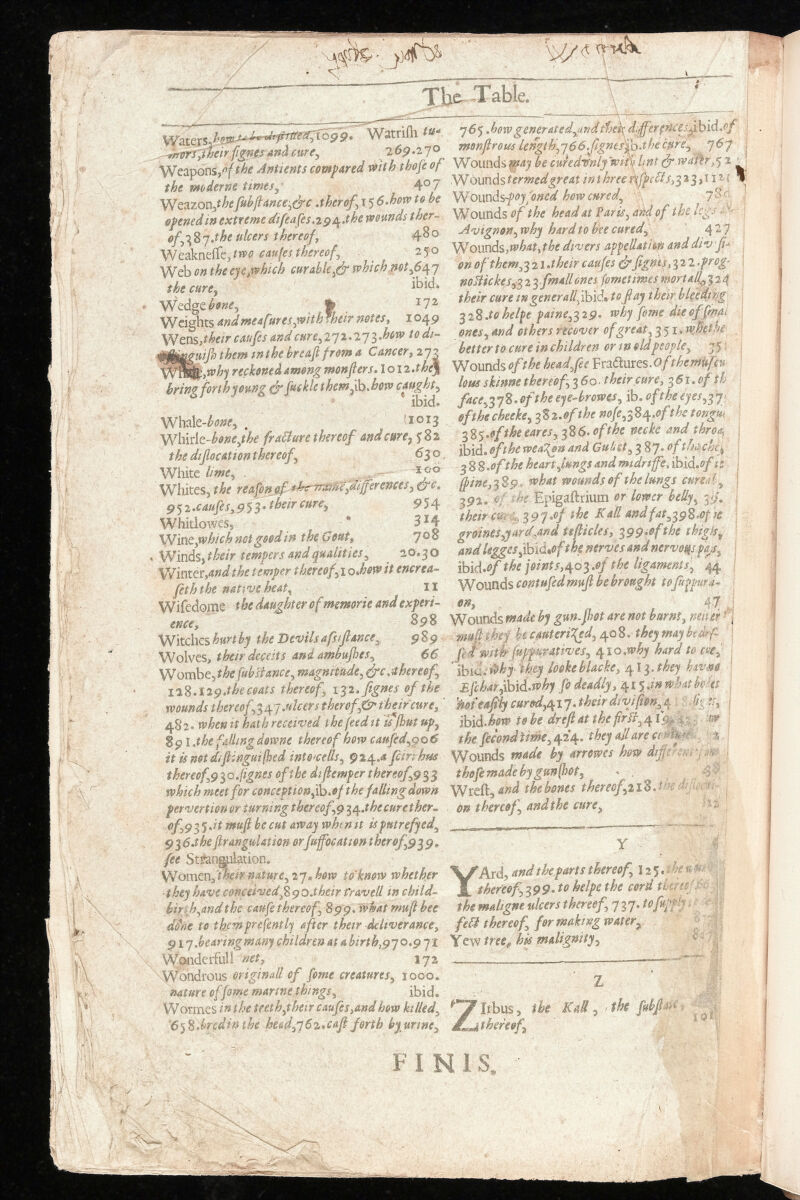 The Table.
Waters, how to be distilled, 1099. Watrish tu-
mors, their signes and cure, 269.270
Weapons, of the Antients compared with those of
the moderne times, 407
Weazon, the substance, &c. therof, 156. how to be
opened in extreme diseases. 294. the wounds ther-
of, 387. the ulcers thereof, 480
Weaknesse, two causes thereof, 250
Web on the eye, which curable, & which not, 647
the cure, ibid.
Wedge bone, 172
Weights and measures, with their notes, 1049
Wens, their causes and cure, 272.273. how to di-
stinguish them in the breast from a Cancer, 273
why reckoned among monsters. 1012. they
bring forth young & suckle them, ib. how caught,
ibid.
Whale-bone, 1013
Whirle-bone, the fracture thereof and cure, 582
the dislocation thereof, 630
White lime, 100
Whites, the reason of the name, differences, &c.
952. causes, 953. their cure, 954
Whitlowes, 314
Wine, which not good in the Gout, 708
Winds, their tempers and qualities, 20.30
Winter, and the temper thereof, 10. how it encrea-
seth the native heat, 11
Wisedome the daughter of memorie and experi-
ence, 898
Witches hurt by the Devils assistance, 989
Wolves, their deceits and ambushes, 66
Wombe, the substance, magnitude, &c. thereof,
128.129. the coats thereof, 132. signes of the
wounds thereof, 347. ulcers therof, & their cure,
482. when it hath received the seed it is shut up,
891. the falling downe thereof how caused, 906
it is not distinguished into cells, 924. a scirrhus
thereof, 930. signes of the distemper thereof, 933
which meet for conception, ib. of the falling down
pervertion or turning thereof, 934. the cure ther-
of, 935. it must be cut away when it is putrefyed,
936. the strangulation or suffocation therof, 939.
see Strangulation.
Women, their nature, 27. how to know whether
they have conceived, 890. their travell in child-
birth, and the cause thereof, 899. what must bee
done to them presently after their deliverance,
917. bearing many children at a birth, 970.971
Wonderfull net, 172
Wondrous originall of some creatures, 1000.
nature of some marine things, ibid.
Wormes in the teeth, their causes, and how killed,
658. bred in the head, 762. cast forth by urine,
765. how generated, and their differences, ibid. of
monstrous length, 766. signes, ib. the cure, 767
Wounds may be cured only with lint & water, 52
Wounds termed great in three respects, 323, 112
Wounds-poysoned how cured, 78
Wounds of the head at Paris, and of the legs
Avignon, why hard to bee cured, 427
Wounds, what, the divers appellation and divisi-
on of them, 321. their causes & signes, 322. prog-
nostickes, 323 small ones sometimes mortall, 324
their cure in generall, ibid. to stay their bleeding
328. to helpe paine, 329. why some die of smal
ones, and others recover of great, 351. whethe
better to cure in children or in old people, 35
Wounds of the head, see Fractures. Of the muscu
lous skinne thereof, 360. their cure, 361. of th
face, 378. of the eye-browes, ib. of the eyes, 37
of the cheeke, 382. of the nose, 384. of the tongu
385. of the eares, 386. of the necke and throa
ibid. of the weazon and Gullet, 387. of the che
388. of the heart, lungs and midriffe, ibid. of
spine, 389. what wounds of the lungs
392. of the Epigastrium or lower belly,
their cure, 397. of the Kall and fat, 398. of
groines, yard, and testicles, 399. of the thighs,
and legges, ibid. of the nerves and nervous
ibid. of the joints, 403. of the ligaments, 44
Wounds contused must be brought to suppura-
on, 47
Wounds made by gun-shot are not burnt, neither
must they be cauterized, 408. they may be
sed with suppuratives, 410. why hard to cure,
ibid. why they looke blacke, 413. they have no
Eschar, ibid. why so deadly, 415. in what bodies
not easily cured, 417. their division, 4
ibid. how to be drest at the first, 419.
the second time, 424. they all are contused,
Wounds made by arrowes how different from
those made by gunshot,
Wrest, and the bones thereof, 218. the disloca-
on thereof, and the cure,
Y
YArd, and the parts thereof, 125. the
thereof, 399. to helpe the cord thereof
the maligne ulcers thereof, 737. to supply
fect thereof, for making water,
Yew tree, his malignity,
Z
ZIrbus, the Kall, the substance,
thereof, 101
FINIS.